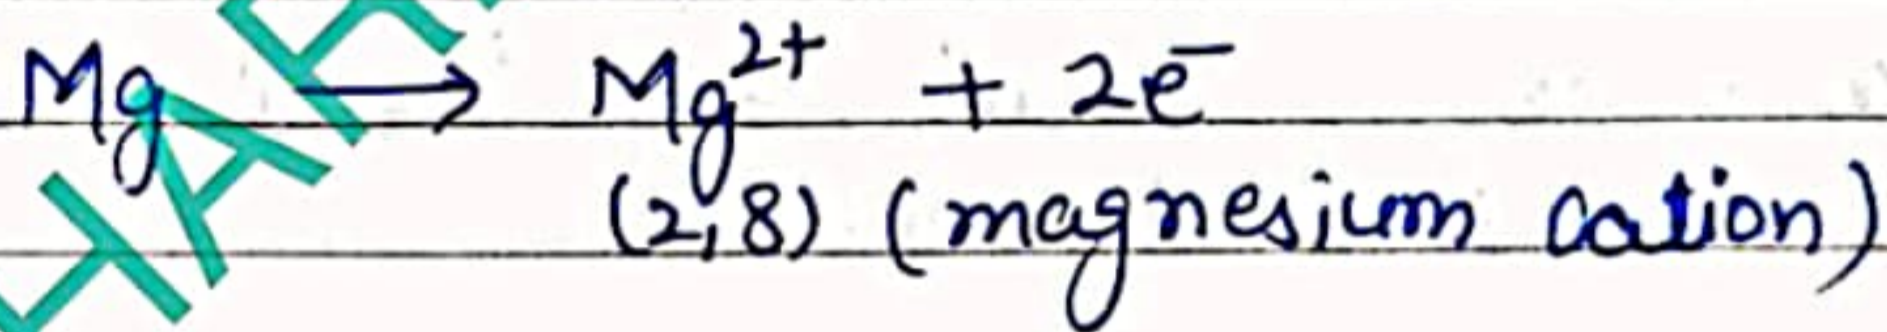 Mg → Mg²⁺ + 2e⁻
(2,8) (magnesium cation)